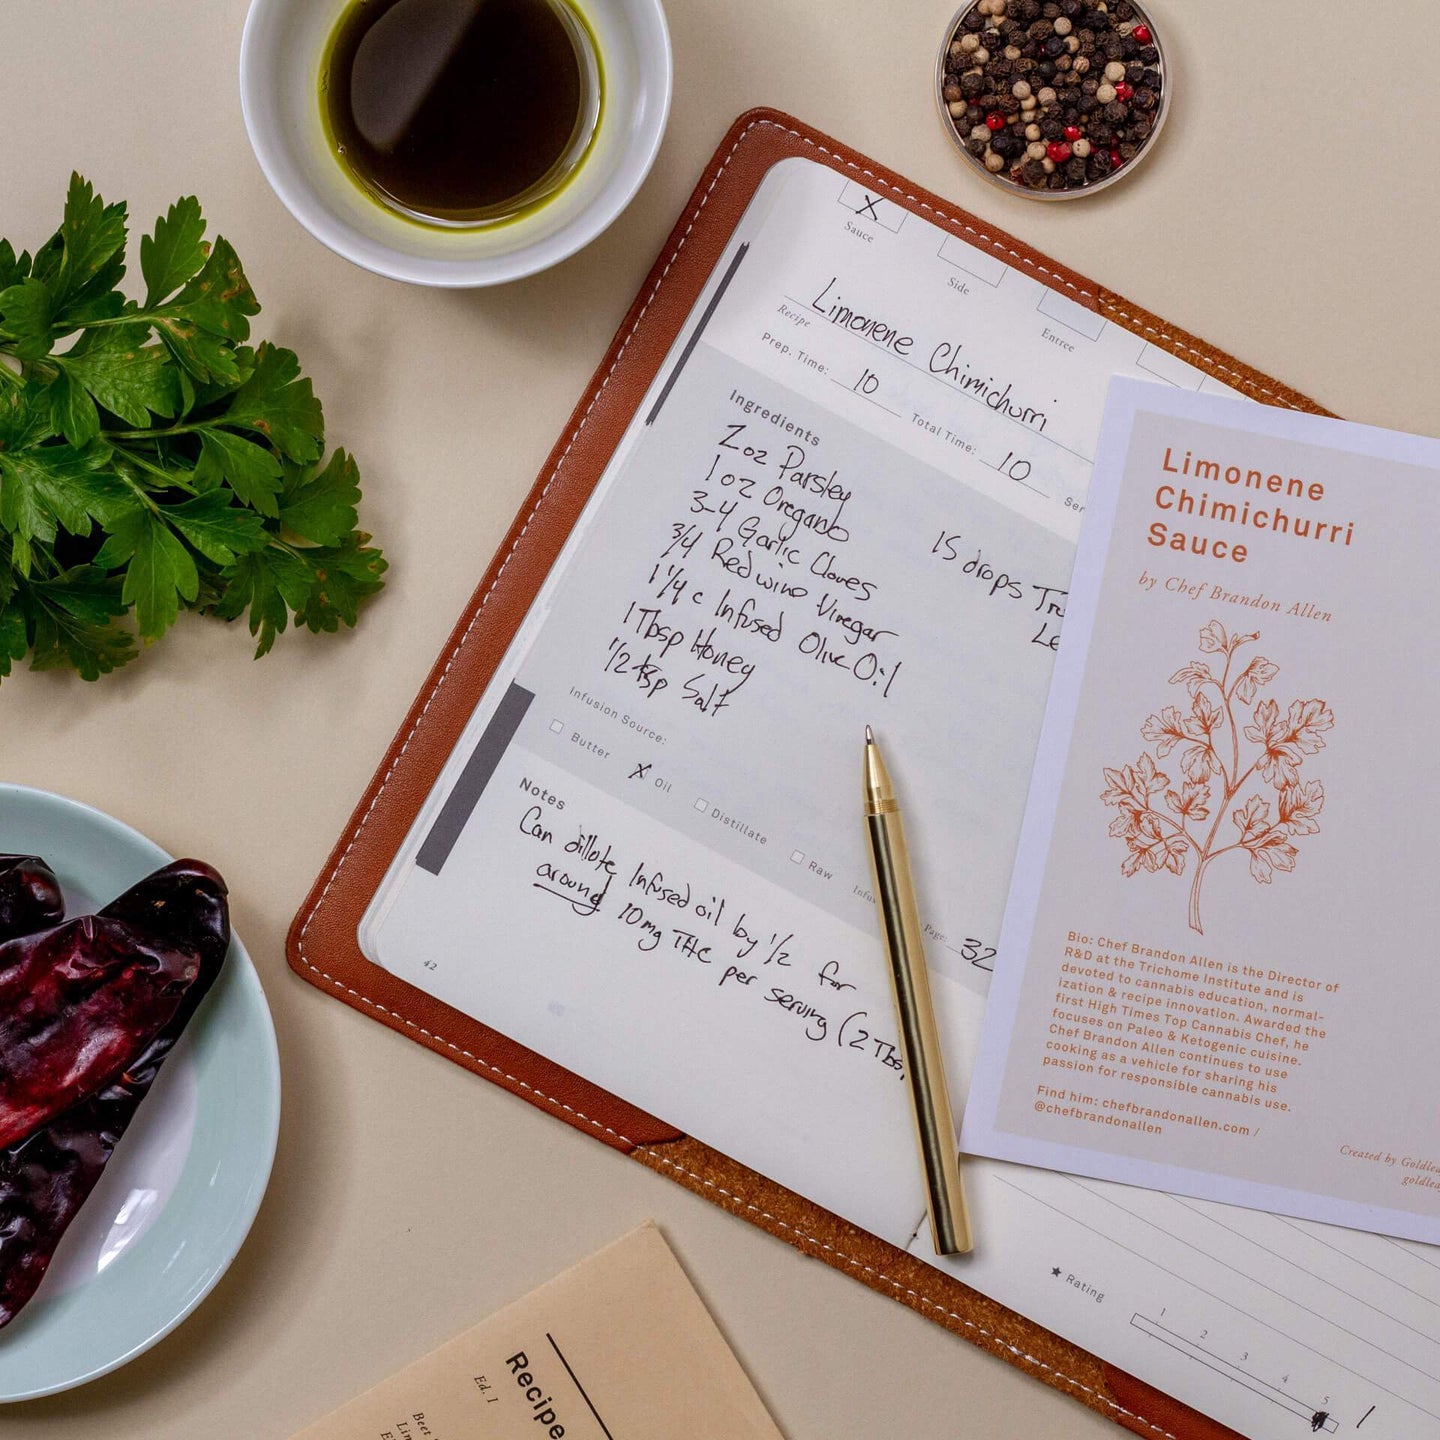 X
Sauce
Side
Entree
Recipe Limonene Chimichurri
Prep. Time: 10 Total Time: 10
Ingredients
2oz Parsley
1oz Oregano
3-4 Garlic Cloves
3/4 Red wine Vinegar
1 1/4 c Infused Olive Oil
1 Tbsp Honey
1/2 tsp Salt
15 drops
Infusion Source:
Butter X Oil Distillate Raw
Page: 32
Notes
Can dillote Infused oil by 1/2 for
around 10mg THC per serving (2 Tbs
42
Limonene
Chimichurri
Sauce
by Chef Brandon Allen
Bio: Chef Brandon Allen is the Director of
R&D at the Trichome Institute and is
devoted to cannabis education, normal-
ization & recipe innovation. Awarded the
first High Times Top Cannabis Chef, he
focuses on Paleo & Ketogenic cuisine.
Chef Brandon Allen continues to use
cooking as a vehicle for sharing his
passion for responsible cannabis use.
Find him: chefbrandonallen.com /
@chefbrandonallen
Created by
★ Rating
1 2 3 4 5
Recipe
Ed. 1
Beet